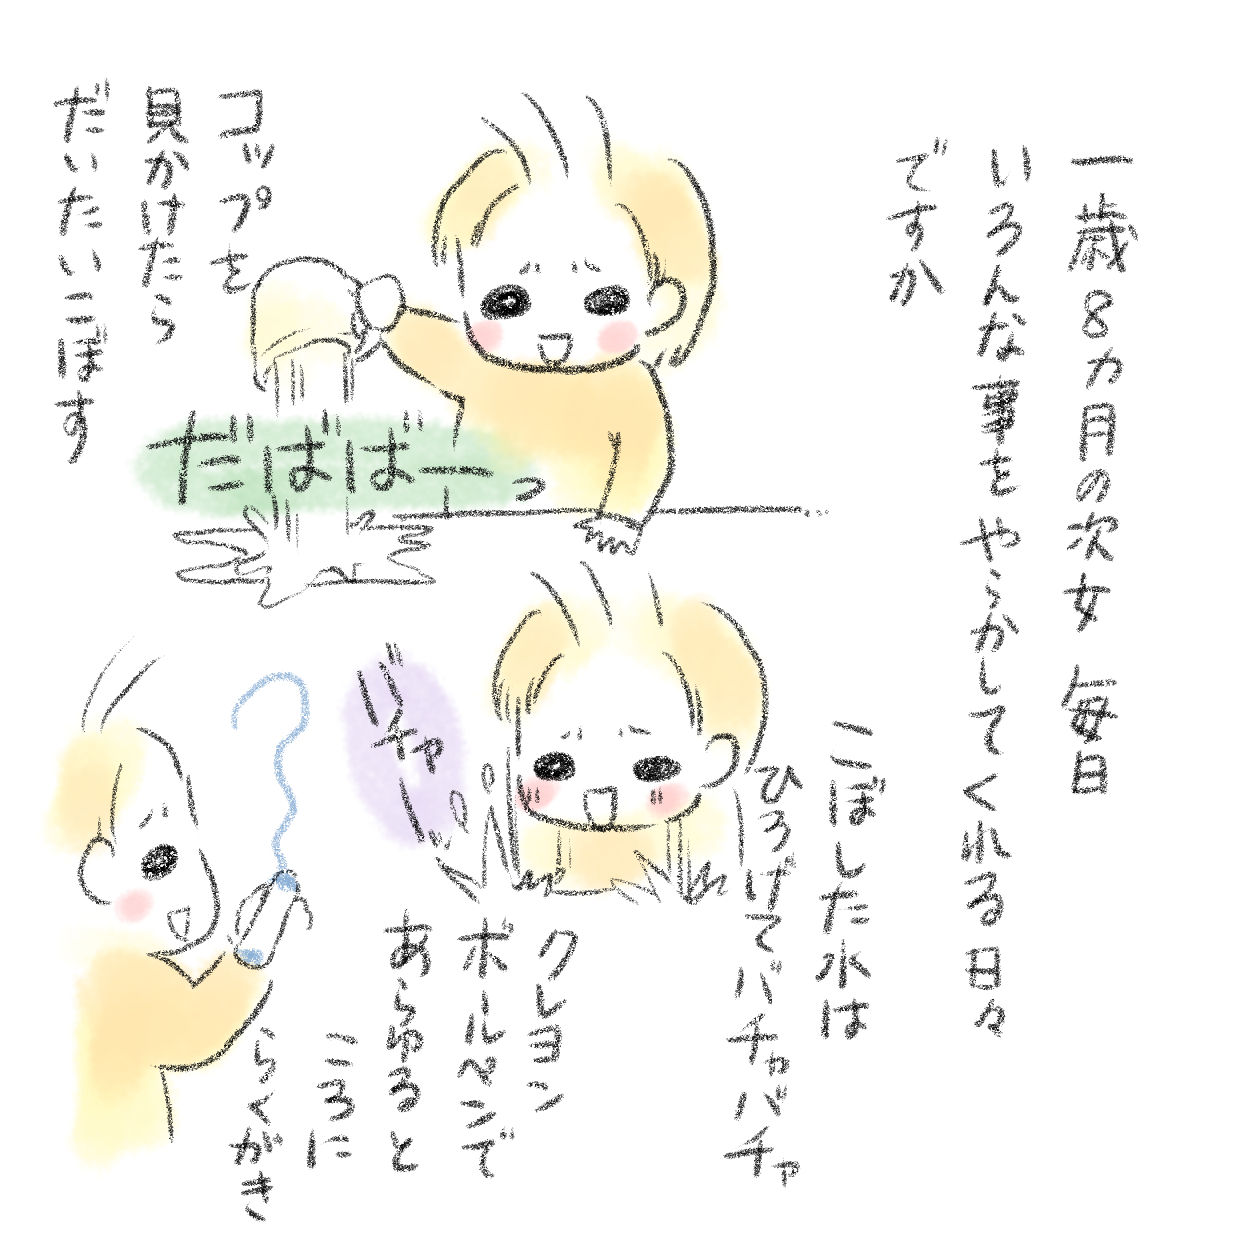 一歳8ヵ月の次女 毎日
いろんな事を やらかしてくれる日々
ですが
コップを
見かけたら
だいたいこぼす
だばばーっ
こぼした水は
ひろげてバチャバチャ
バチャ
クレヨン
ボールペンで
あらゆると
ころに
らくがき